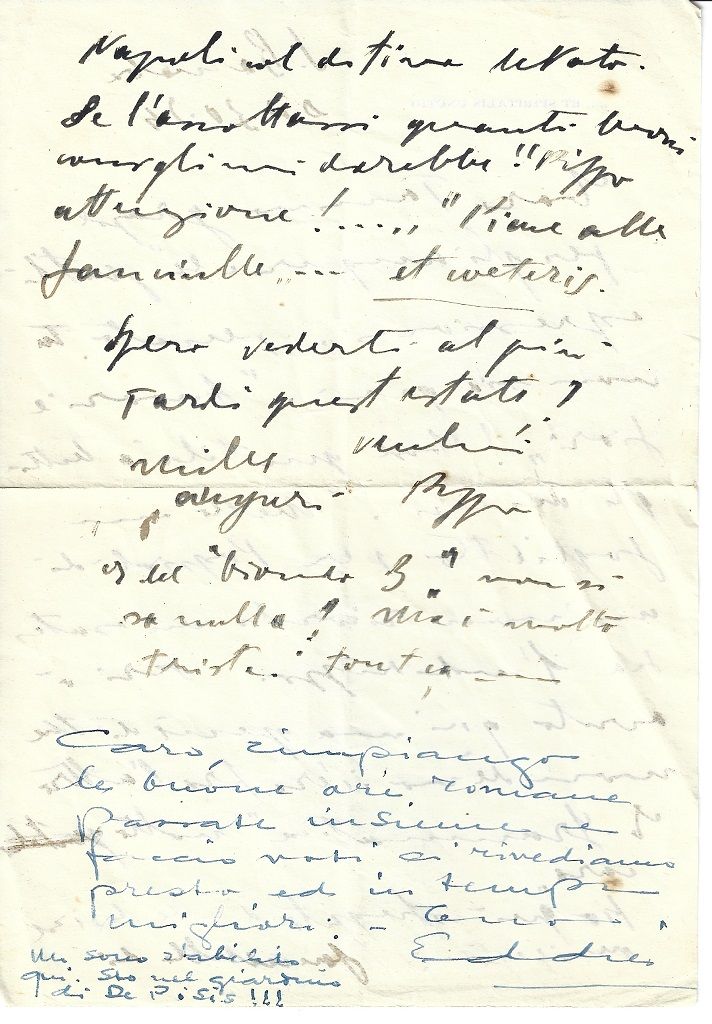 Napoli col destino
Se l'ascoltassi quanti buoni
consigli mi darebbe!! Pippo
attenzione!.... "Piace alle
fanciulle.... et coeteris.
Spero vederti al più
tardi quest'estate?
mille
auguri Pippo
del "biondo B." non si
sa nulla! Ma è molto
triste! tout ça
Caro, rimpiango
le buone ore romane
passate insieme e
faccio voti ci rivediamo
presto ed in tempi
migliori! - Tuo
Eddie
Mi sono stabilito
qui. Sto nel giardino
di De Pisis!!!